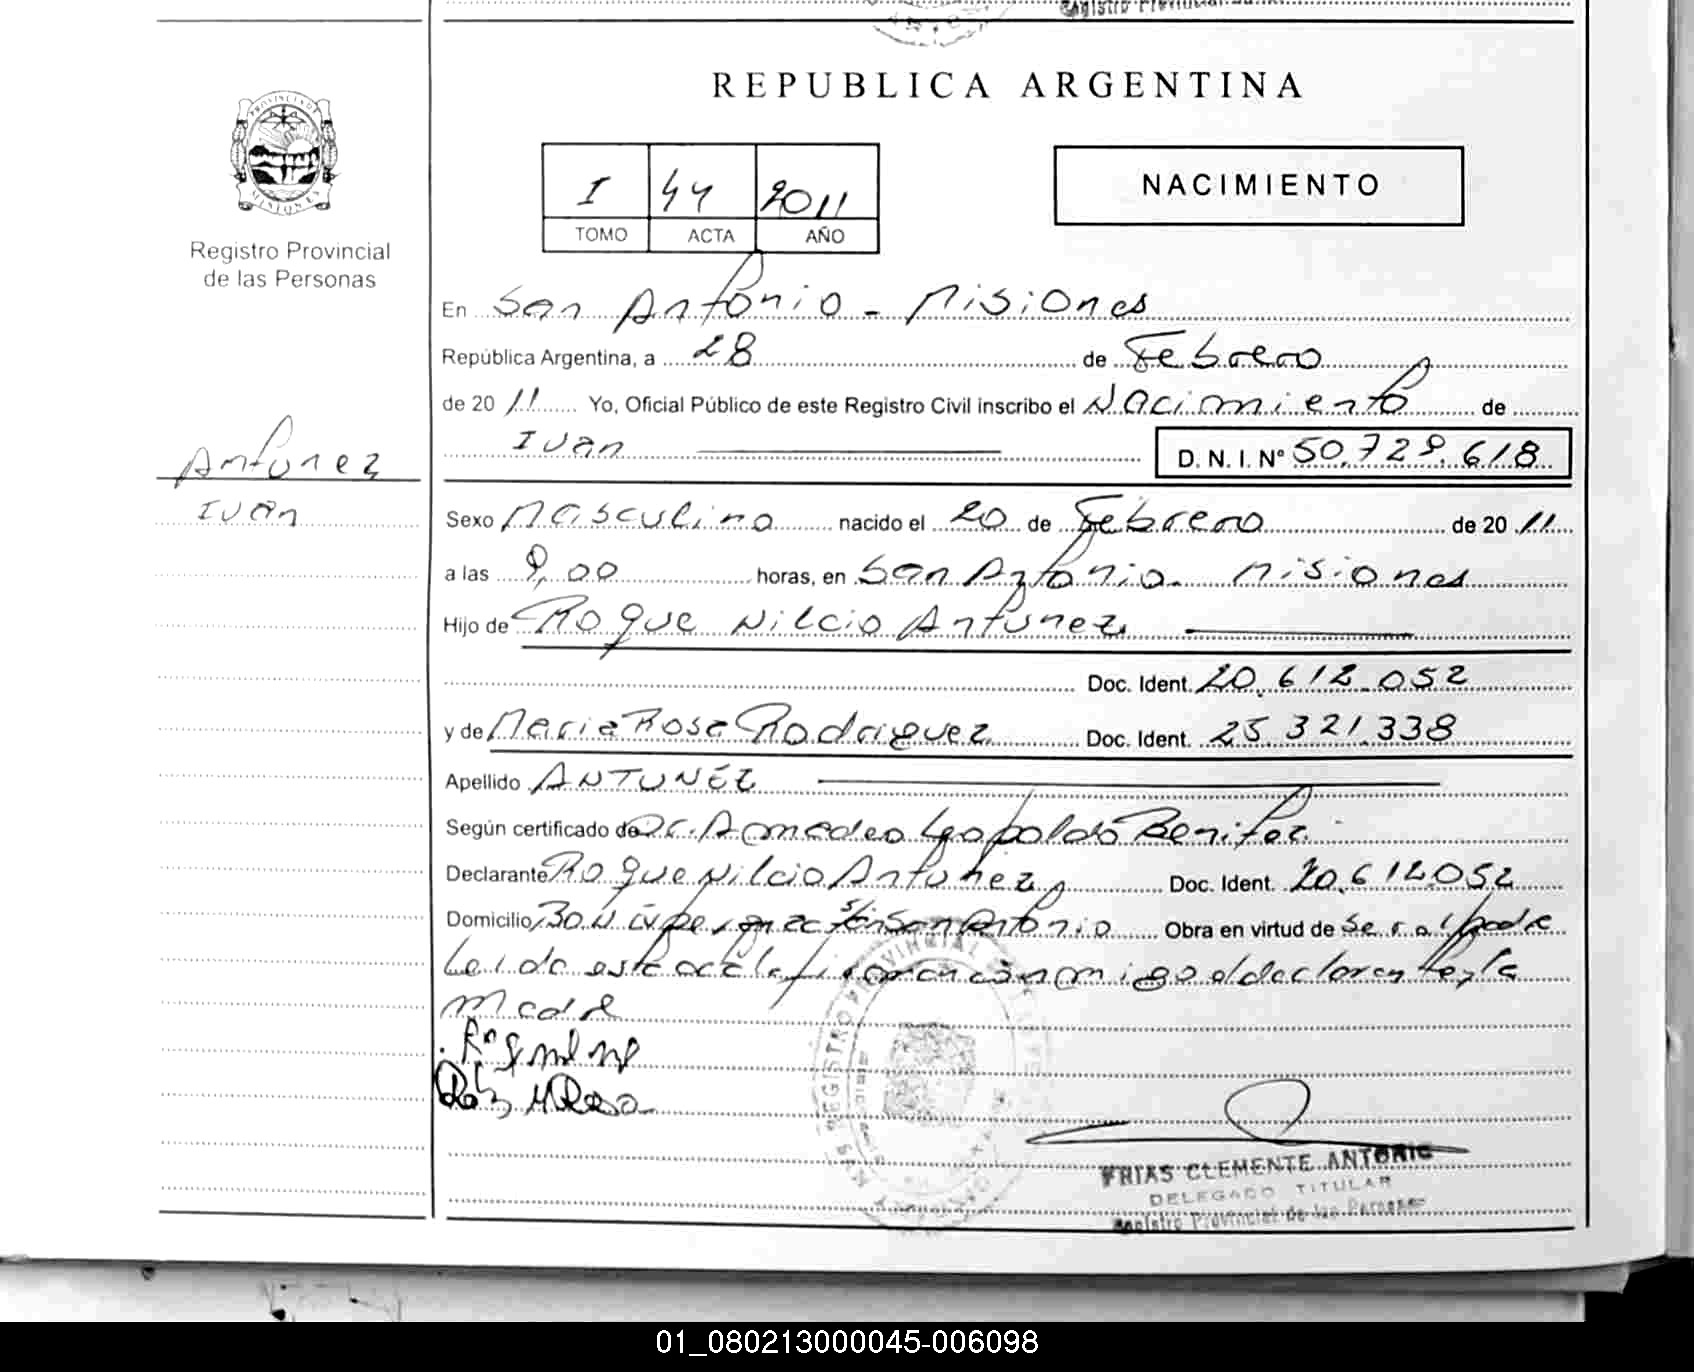 REPUBLICA ARGENTINA
PROVINCIA DE
MISIONES
Registro Provincial
de las Personas
I 44 2011
TOMO ACTA AÑO
NACIMIENTO
En San Antonio - Misiones
República Argentina, a 28 de Febrero
de 20 11 Yo, Oficial Público de este Registro Civil inscribo el Nacimiento de
Ivan D. N. I. Nº 50.728.618
Antunez
Ivan
Sexo Masculino nacido el 20 de Febrero de 20 11
a las 9,00 horas, en San Antonio - Misiones
Hijo de Roque Nilcio Antunez
Doc. Ident. 20.612.052
y de Maria Rosa Rodriguez Doc. Ident. 25.321.338
Apellido ANTUNEZ
Según certificado de Dr. Amadeo Leopoldo Benitez
Declarante Roque Nilcio Antunez Doc. Ident. 20.612.052
Domicilio Bo. s/n San Antonio Obra en virtud de ser el padre
Leida esta acta la firman conmigo el declarante y la
Madre
FRIAS CLEMENTE ANTONIO
DELEGADO TITULAR
Registro Provincial de las Personas
01_080213000045-006098